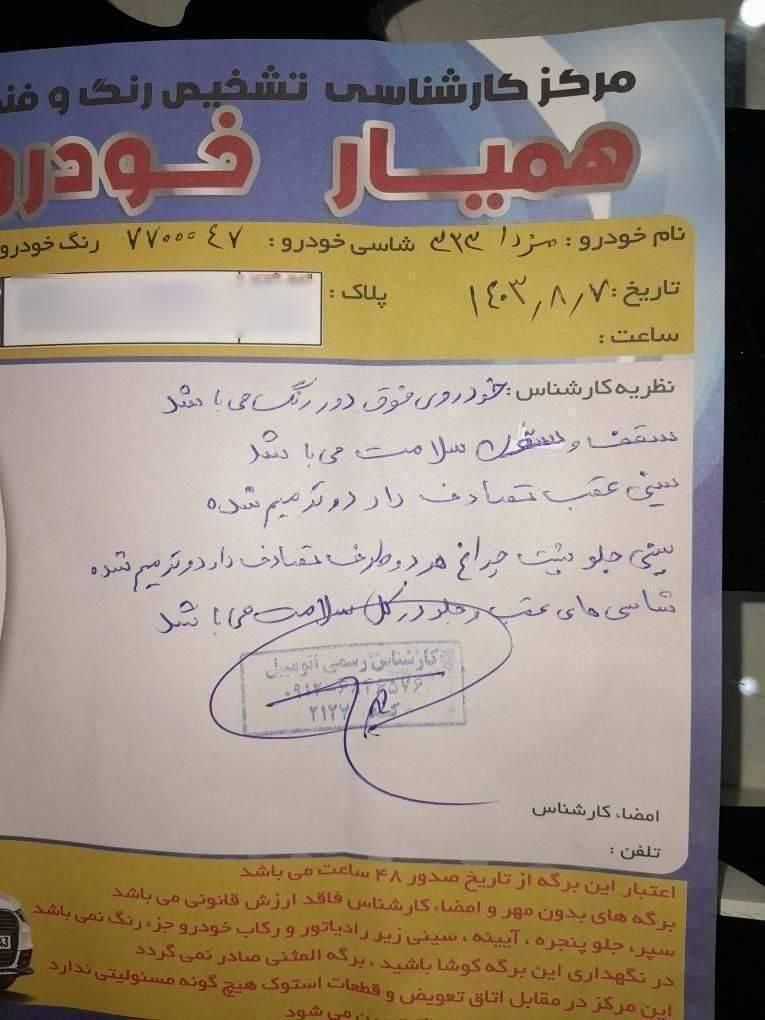 مرکز کارشناسی تشخیص رنگ و فنی
همیار خودرو
نام خودرو : مزدا ۳۲۳ شاسی خودرو : ۷۷۰۰۰۴۷ رنگ خودرو
تاریخ : ۱۴۰۳/۸/۷ پلاک :
ساعت :
نظریه کارشناس : خودروی فوق دور رنگ می باشد
سقف و ستون سلامت می باشد
سینی عقب تصادف دارد و ترمیم شده
سینی جلو پشت چراغ هر دو طرف تصادف دارد و ترمیم شده
شاسی های عقب و جلو در کل سلامت می باشد
کارشناس رسمی اتومبیل
۲۱۲۲
امضاء کارشناس
تلفن :
اعتبار این برگه از تاریخ صدور ۴۸ ساعت می باشد
برگه های بدون مهر و امضاء کارشناس فاقد ارزش قانونی می باشد
سپر، جلو پنجره ، آیینه ، سینی زیر رادیاتور و رکاب خودرو جزء رنگ نمی باشد
در نگهداری این برگه کوشا باشید ، برگه المثنی صادر نمی گردد
این مرکز در مقابل اتاق تعویض و قطعات استوک هیچ گونه مسئولیتی ندارد
می شود